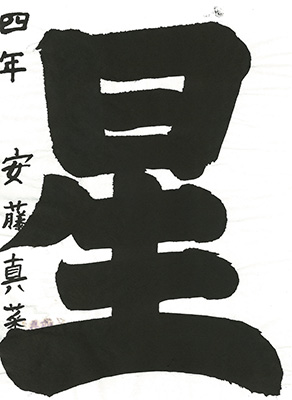 星
四年 安藤真菜